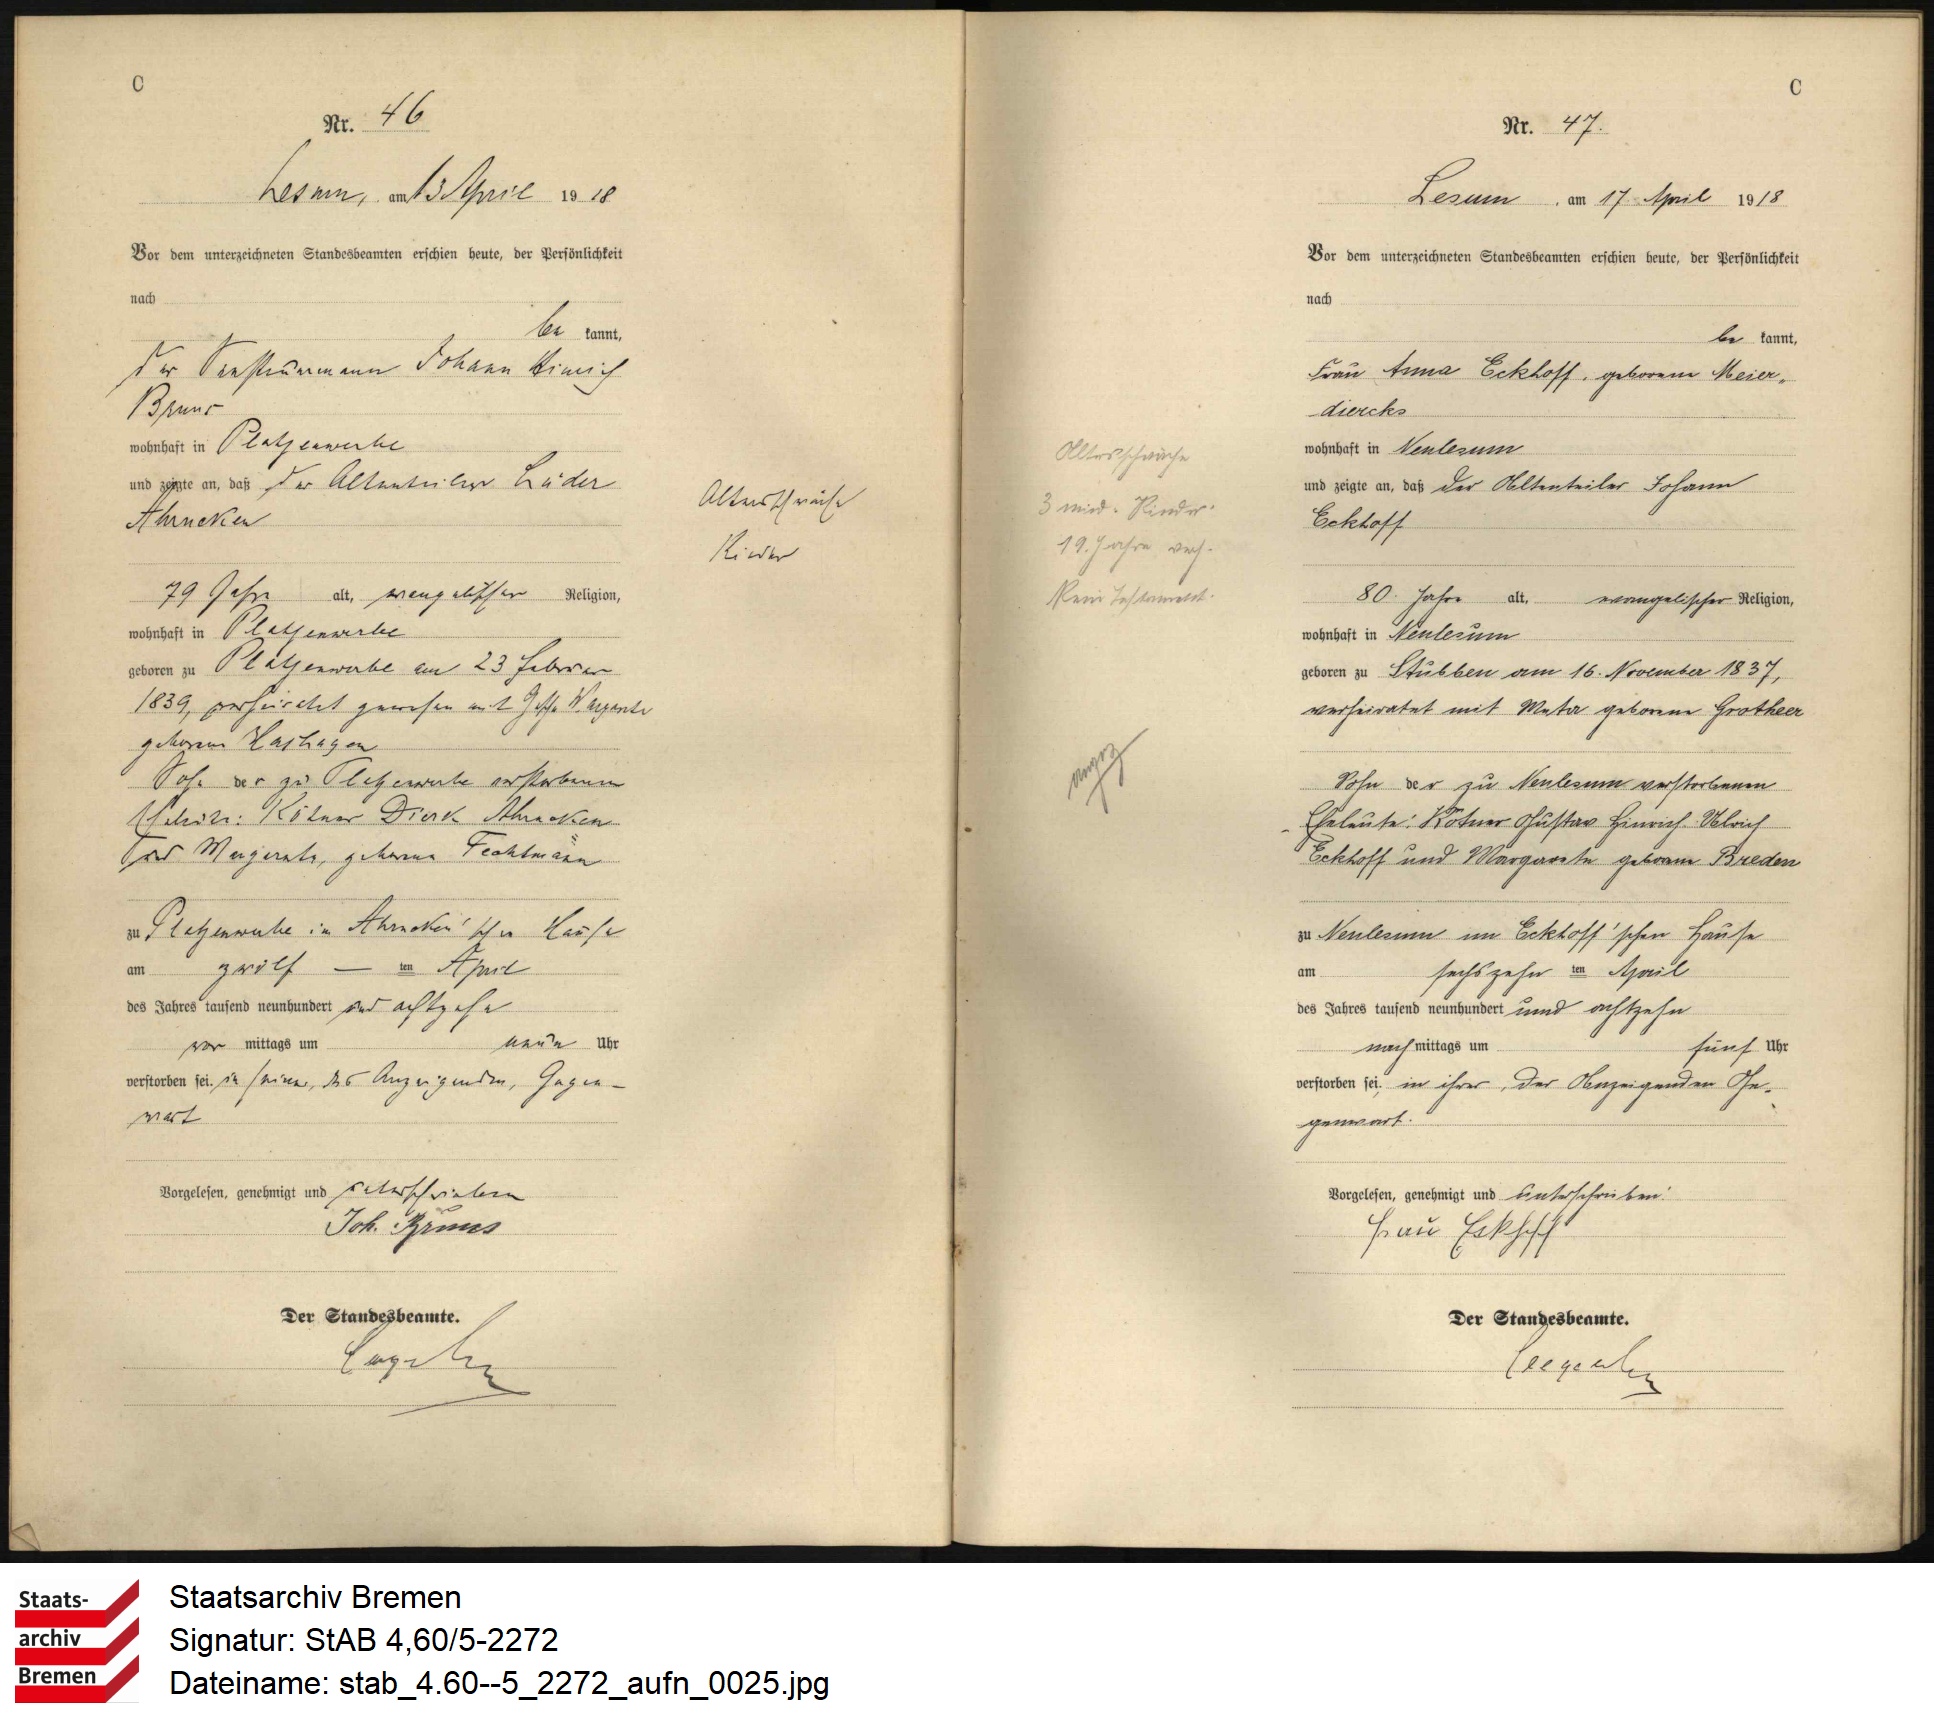 C
Nr. 46
Lesum, am 13 April 1918
Vor dem unterzeichneten Standesbeamten erschien heute, der Persönlichkeit
nach
be kannt,
der Johann Hinrich
Bruns
wohnhaft in Platjenwerbe
und zeigte an, daß der Altenteiler Lüder
Ahrncken
79 Jahre alt, evangelischer Religion,
wohnhaft in Platjenwerbe
geboren zu Platjenwerbe am 23 Februar
1839, verheiratet gewesen mit Gesche Margarete
geborene Hashagen
Sohn der zu Platjenwerbe verstorbenen
Eheleute: Kötner Dierk Ahrncken
und Margarete, geborene Fechtmann
zu Platjenwerbe im Ahrncken'schen Hause
am zwölf — ten April
des Jahres tausend neunhundert und achtzehn
vor mittags um neun Uhr
verstorben sei. in seiner, des Anzeigenden, Gegen-
wart
Vorgelesen, genehmigt und unterschrieben
Joh. Bruns
Der Standesbeamte.
Altersschwäche
Kinder
C
Nr. 47.
Lesum, am 17. April 1918
Vor dem unterzeichneten Standesbeamten erschien heute, der Persönlichkeit
nach
be kannt,
Frau Anna Eckhoff, geborene Meier-
diercks
wohnhaft in Neulesum
und zeigte an, daß der Altenteiler Johann
Eckhoff
80 Jahre alt, evangelischer Religion,
wohnhaft in Neulesum
geboren zu Stubben am 16. November 1837,
verheiratet mit Meta geborene Grotheer
Sohn der zu Neulesum verstorbenen
Eheleute: Kötner Gustav Hinrich Ulrich
Eckhoff und Margarete geborene Breden
zu Neulesum im Eckhoff'schen Hause
am sechszehn ten April
des Jahres tausend neunhundert und achtzehn
nach mittags um fünf Uhr
verstorben sei, in ihrer, der Anzeigenden Ge-
genwart.
Vorgelesen, genehmigt und unterschrieben:
Frau Eckhoff
Der Standesbeamte.
Altersschwäche
3 mind. Kinder
19. Jahre verh.
Kein Testament.
Staats-
archiv
Bremen
Staatsarchiv Bremen
Signatur: StAB 4,60/5-2272
Dateiname: stab_4.60--5_2272_aufn_0025.jpg